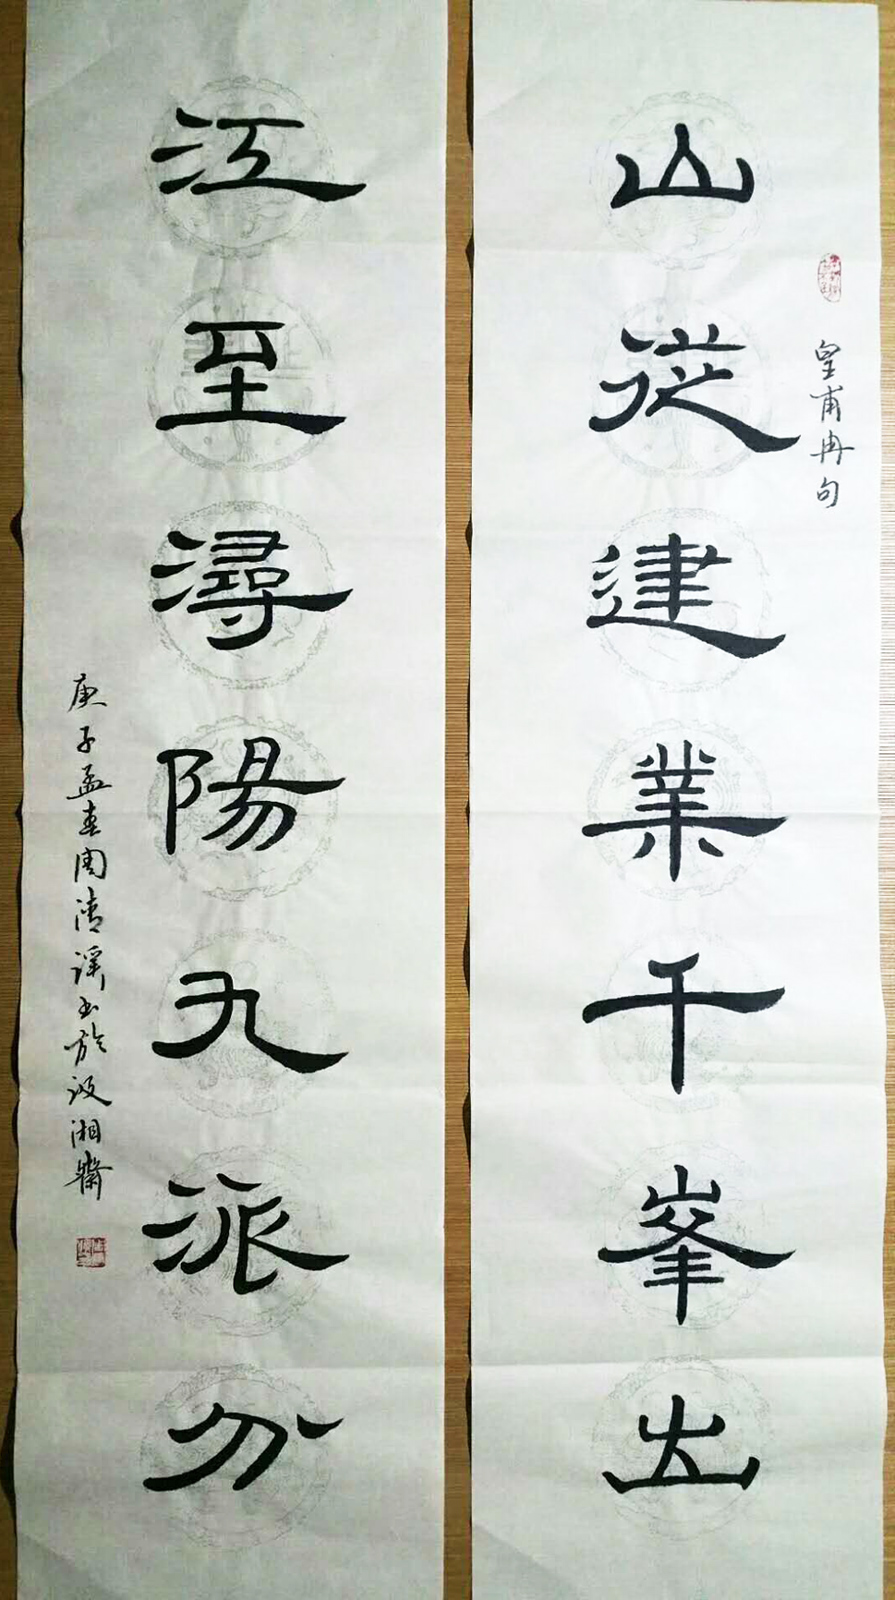 皇甫冉句
山從建業千峯出
江至潯陽九派分
庚子孟春周清谋书於汲湘齋